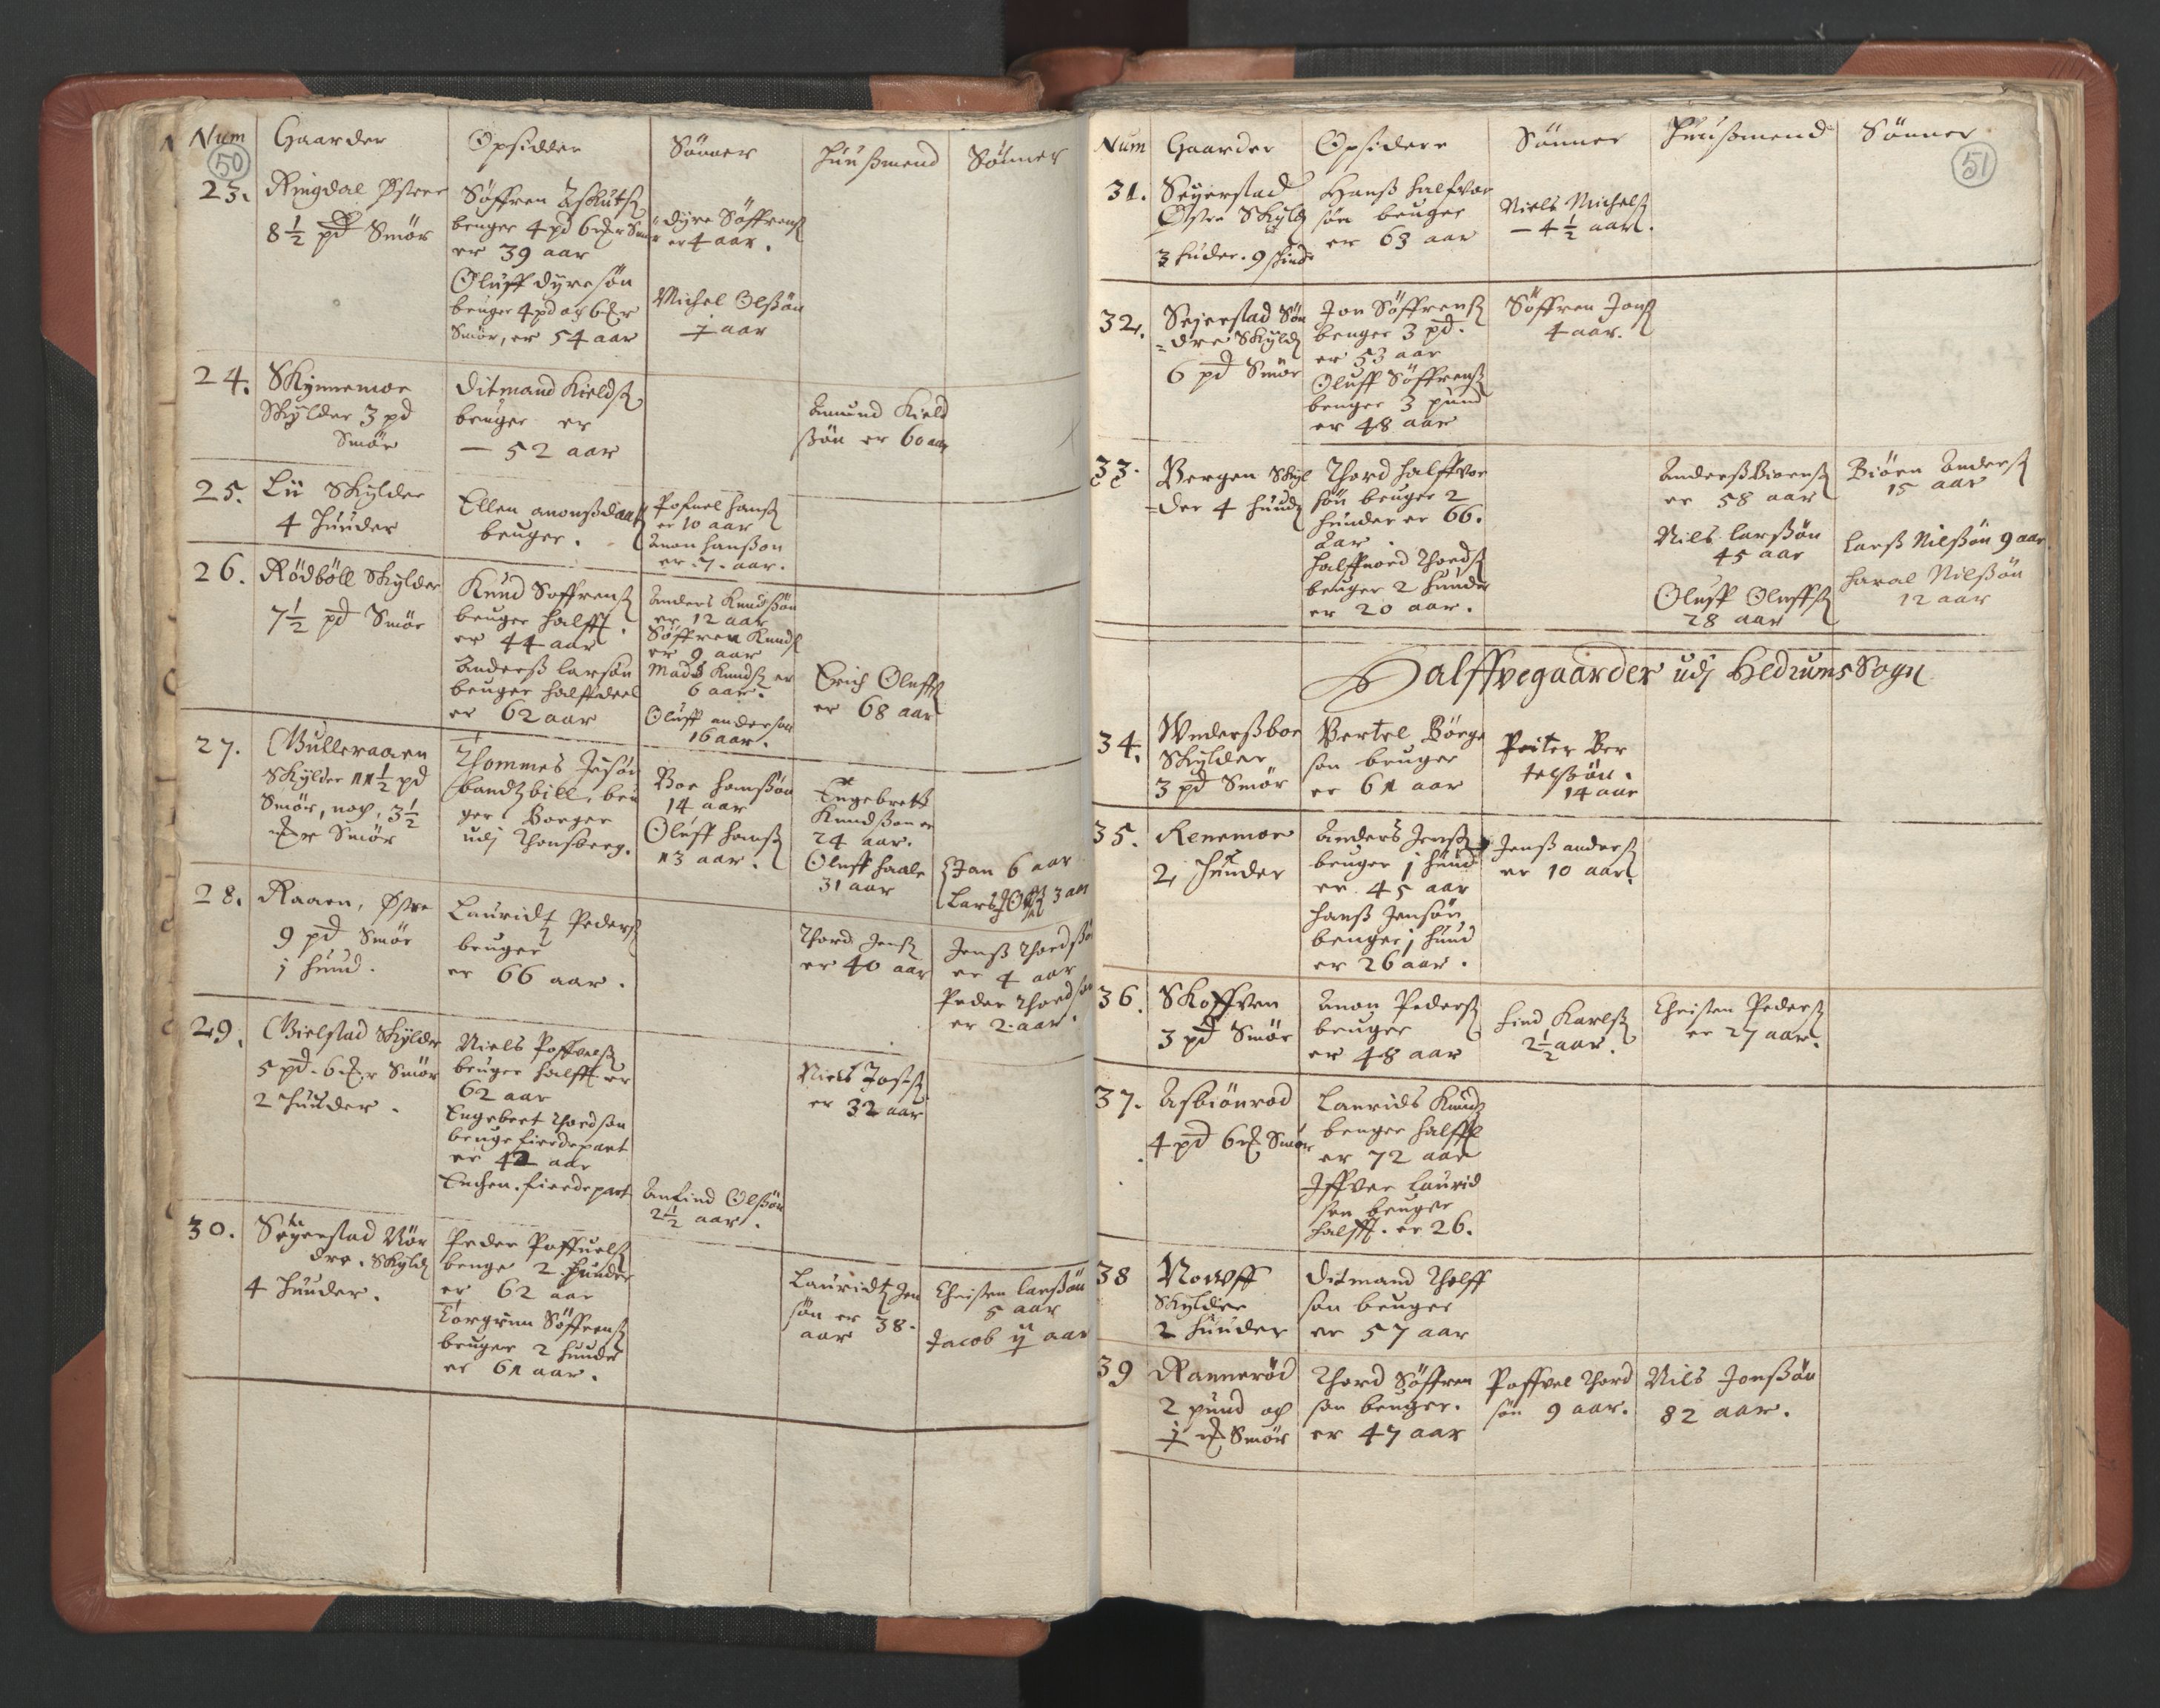 Num Gaarder Opsidder Sönner Huusmend Sönner
50
23. Ringdal Østre
8 1/2 pd Smör
Söffren Aslutß
bruger 4 pd 6 mr Smör
er 39 aar
Oluff dyresön
bruger 4 pd og 6 mr
Smör, er 54 aar
dyre Söffrenß
er 4 aar.
Michel Olßön
1 aar
24. Skinnemoe
Skylder 3 pd
Smör
Ditmand Kieldß
bruger er
— 52 aar
Amund Kield
ßön er 60 aar
25. Lii Skylder
4 Huuder
Ellen anonßdaat
bruger.
Pofuel Hanß
er 10 aar
Anon Hanßon
er. 7. aar.
26. Rödböll Skylder
7 1/2 pd Smör
Knud Soffrenß
bruger halfft.
er 44 aar
Anderß larsön
bruger halffdeel
er 62 aar
Anders Knudßön
er 12 aar
Söffren Knudß
er 9 aar
Mads Knudß er
6 aar.
Oluff anderson
16 aar.
Erich Oluffß
er 68 aar
27. Gulleraaen
Skylder 11 1/2 pd
Smör, noch, 3 1/2
mr Smör
Thommes Jpsön
bruger Borger
udj Thonsberg.
Boe Hanßön
14 aar
Oluff Hanß
13 aar.
Engebrett
Knudßon er
24 aar.
Oluff Haale
31 aar
Jan 6 aar
Lars Olß 3 aar
28. Raaen, Østre
9 pd Smör
j Huud.
Lauridtz Pederß
bruger
er 66 aar.
Thord Jenß
er 40 aar
Jenß Thordßön
er 4 aar
Peder Thordsön
er 2 aar.
29. Gielstad Skylder
5 pd. 6 mr Smör
2 Huuder.
Niels Poffvelß
bruger halfft er
62 aar
Engebret Thordson
bruge fierdepart
er 42 aar
Enchen. fierdepart
Anfind Olßön
2 1/2 aar.
Niels Jostß
er 32 aar
30. Seyerstad Nör
dre. Skyldr
4 Huuder.
Peder Poffuelß
bruge 2 Huuder
er 62 aar
Torgrim Söffrenß
bruger 2 Huuder
er 61 aar.
Lauridtz Jen
sön er 38.
aar
Christen larßön
5 aar
Jacob ij aar
Num Gaarder Opsidere Sönner Huußmend Sönner
51
31. Seyerstad
Östre Skyldr
3 Huder. 9 skind
Hanß halfvor
sön bruger
er 63 aar
Niels Michelß
— 4 1/2 aar.
32. Seyerstad Sön
=dre Skyldr
6 pd Smör
Jon Söffrenß
bruger 3 pd.
er 53 aar
Oluff Söffrenß
bruger 3 pund
er 48 aar
Söffren Jonß
4 aar.
33. Bergen Skyl
=der 4 Huudr
Thord halffvor
sön bruger 2
Huuder er 66.
Aar.
Halffuord Thordß
bruger 2 Huuder
er 20 aar.
Anderß Biornß
er 58 aar
Nils larßön
45 aar
Oluff Oluffß
28 aar
Biörn Anderß
15 aar
Larß Nilßön 9 aar
Haral Nilßön
12 aar
Halffvegaarder udj Hedrums Sogn
34. Underßboe
Skylder
3 pd Smör
Bertel Börge
son bruger
er 61 aar
Peiter Ber
telßön.
14 aar
35. Renemoe
2 Huuder
Anders Jenß
bruger j huud
er 45 aar
Hanß Jensön
bruger j huud
er 26 aar.
Jenß anderß
er 10 aar.
36. Skoffven
3 pd Smör
Anon Pederß
bruger
er 48 aar
Find Karlß
2 1/2 aar.
Christen Pederß
er 27 aar.
37. Asbiönrod
4 pd 6 mr Smör
Laurids Knudß
bruger halfft
er 72 aar
Iffver Laurid
sen bruger
halfft. er 26.
38
Skylder
2 Huuder
Ditmand Tholff
son bruger
er 57 aar
39 Ranneröd
2 pund og
1 mr Smör
Thord Söffren
son bruger.
er 47 aar
Poffvel Thord
sön 9 aar.
Nils Jonßön
82 aar.